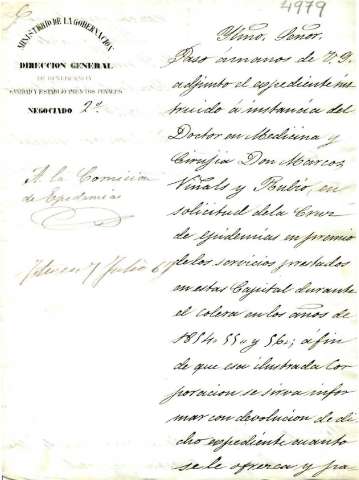 4979
MINISTERIO DE LA GOBERNACION
DIRECCION GENERAL
DE BENEFICENCIA
SANIDAD Y ESTABLECIMIENTOS PENALES
NEGOCIADO 2º
A la Comision
de Epidemias
7 Julio 6
Ylmo. Señor.
Paso á manos de V. Y.
adjunto el expediente ins
truido á instancia del
Doctor en Medicina y
Cirujia Don Marcos
Viñals y Rubio, en
solicitud de la Cruz
de epidemias en premio
de los servicios prestados
en esta Capital durante
el colera en los años de
1854. 55. y 56.; á fin
de que esa ilustrada Cor
poracion se sirva infor
mar con devolucion de di
cho expediente cuanto
se le ofrezca y pa